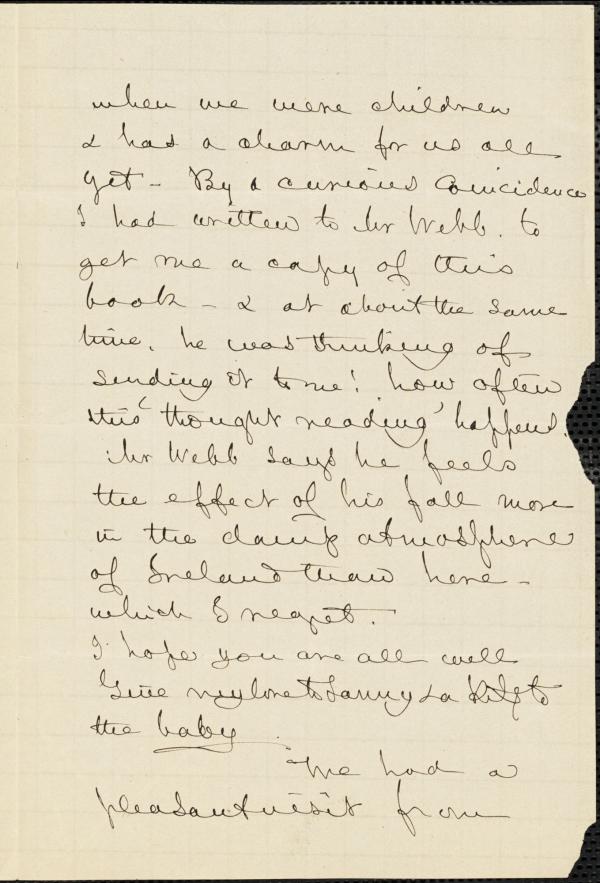 when we were children
& has a charm for us all
yet - By a curious coincidence
I had written to Mr Webb. to
get me a copy of this
book - & at about the same
time. he was thinking of
sending it to me! how often
this 'thought reading' happens.
Mr Webb says he feels
the effect of his fall more
in the damp atmosphere
of Ireland than here -
which I regret.
I hope you are all well
Give my love to Fanny & a Kiss to
the baby.
We had a
pleasant visit from